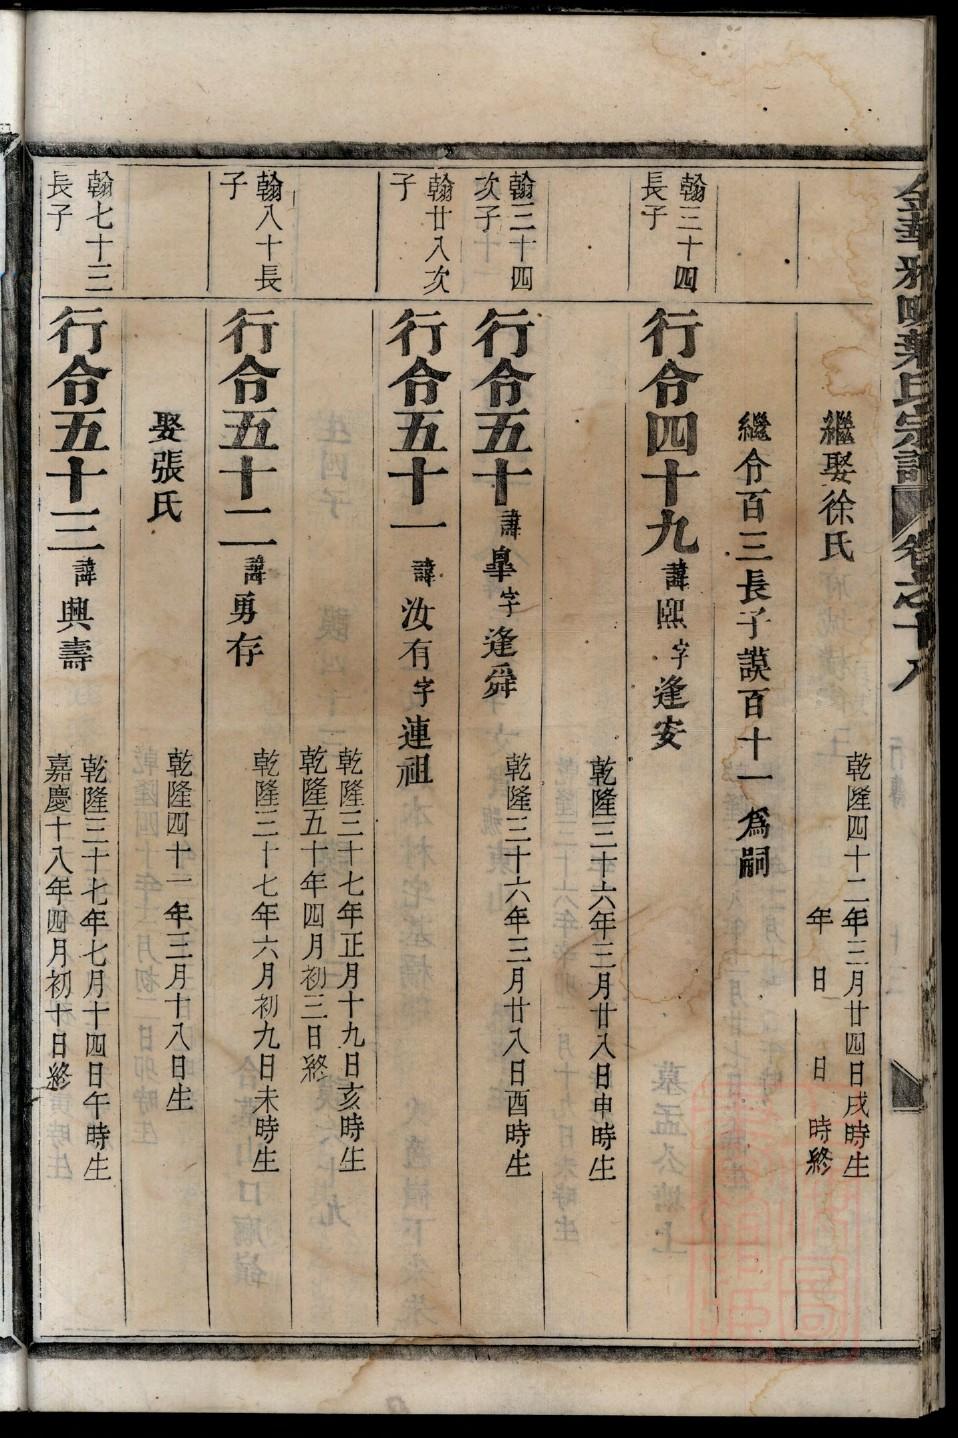 繼娶徐氏
乾隆四十二年三月廿四日戌時生
年 日 日 時終
繼令百三長子謨百十一爲嗣
翰三十四
長子
行令四十九 諱熙字逢安
乾隆三十六年三月廿八日申時生
翰三十四
次子
行令五十 諱臯字逢舜
乾隆三十六年三月廿八日酉時生
翰廿八次
子
行令五十一 諱汝有字連祖
乾隆三十七年正月十九日亥時生
乾隆五十年四月初三日終
翰八十長
子
行令五十二 諱勇存
乾隆三十七年六月初九日未時生
娶張氏
乾隆四十一年三月十八日生
翰七十三
長子
行令五十三 諱興壽
乾隆三十七年七月十四日午時生
嘉慶十八年四月初十日終